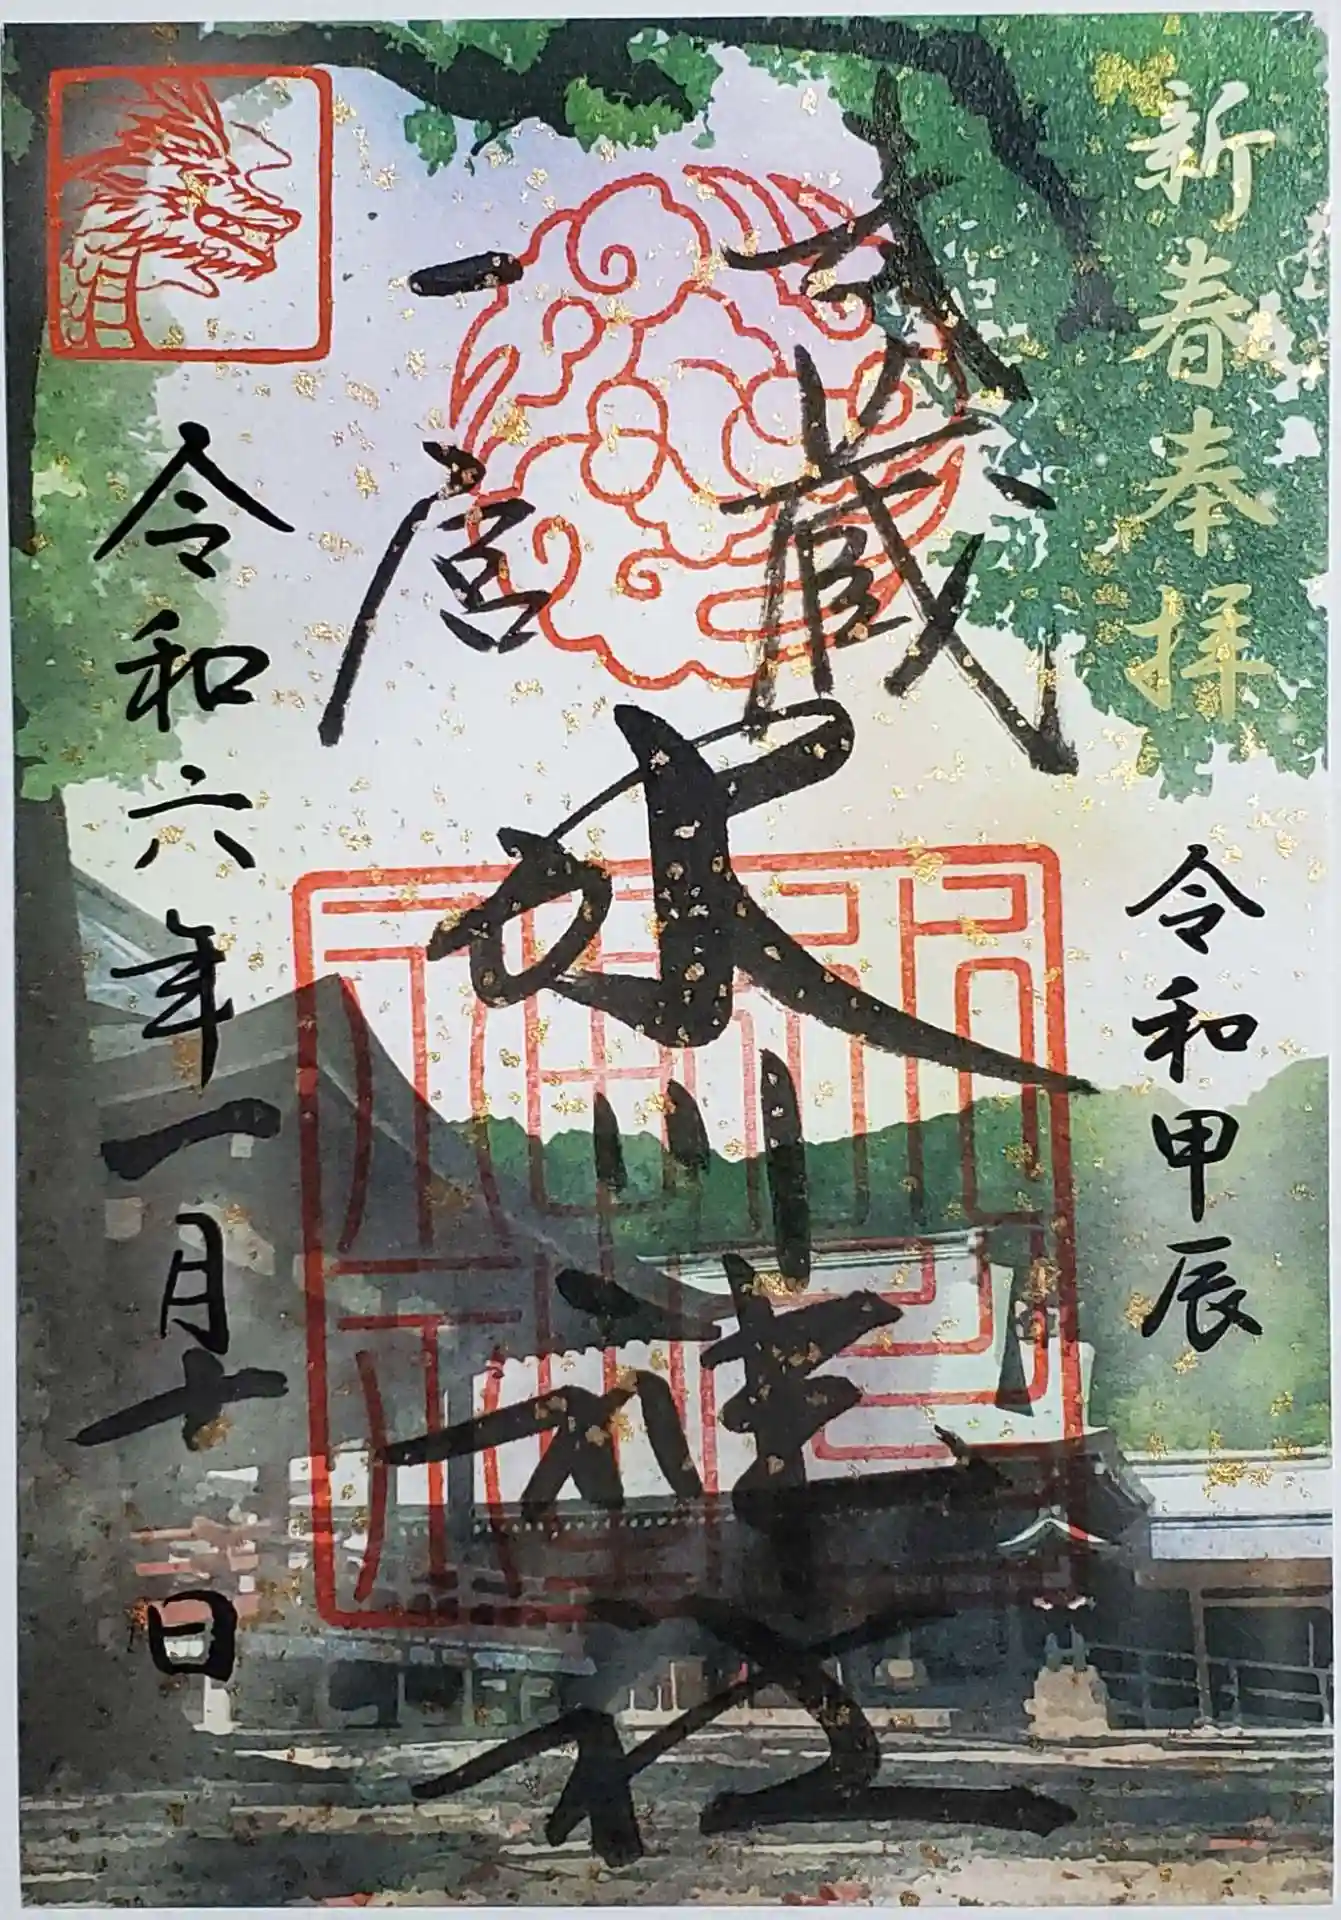 新春奉拝
令和甲辰
武蔵
一宮
氷川神社
令和六年一月十日